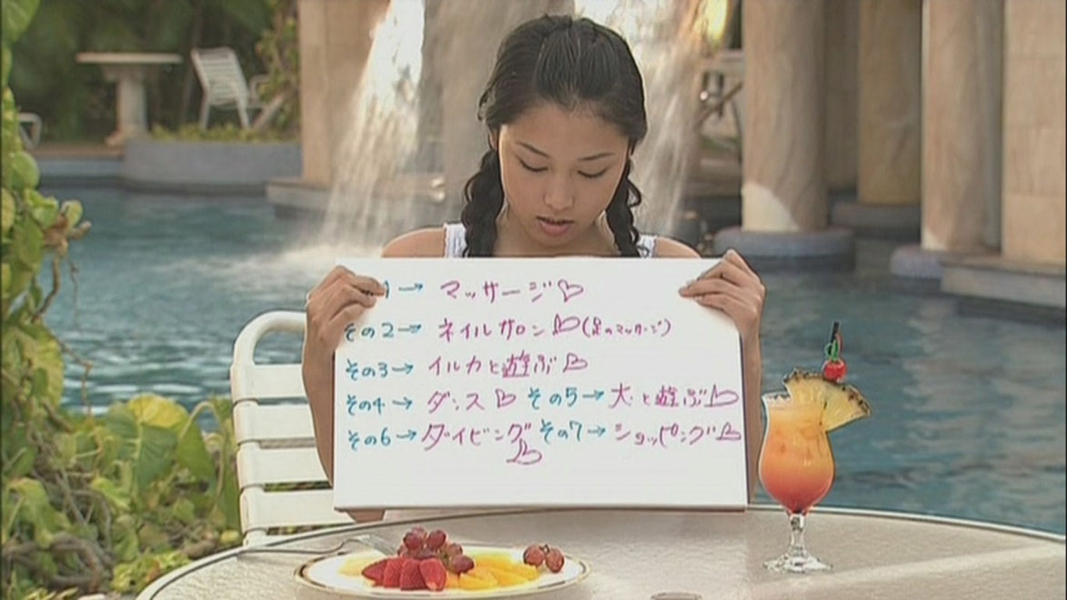 1→ マッサージ♡
その2→ ネイルサロン♡(足のマッサージ)
その3→ イルカと遊ぶ♡
その4→ ダンス♡ その5→ 犬と遊ぶ♡
その6→ ダイビング♡ その7→ ショッピング♡